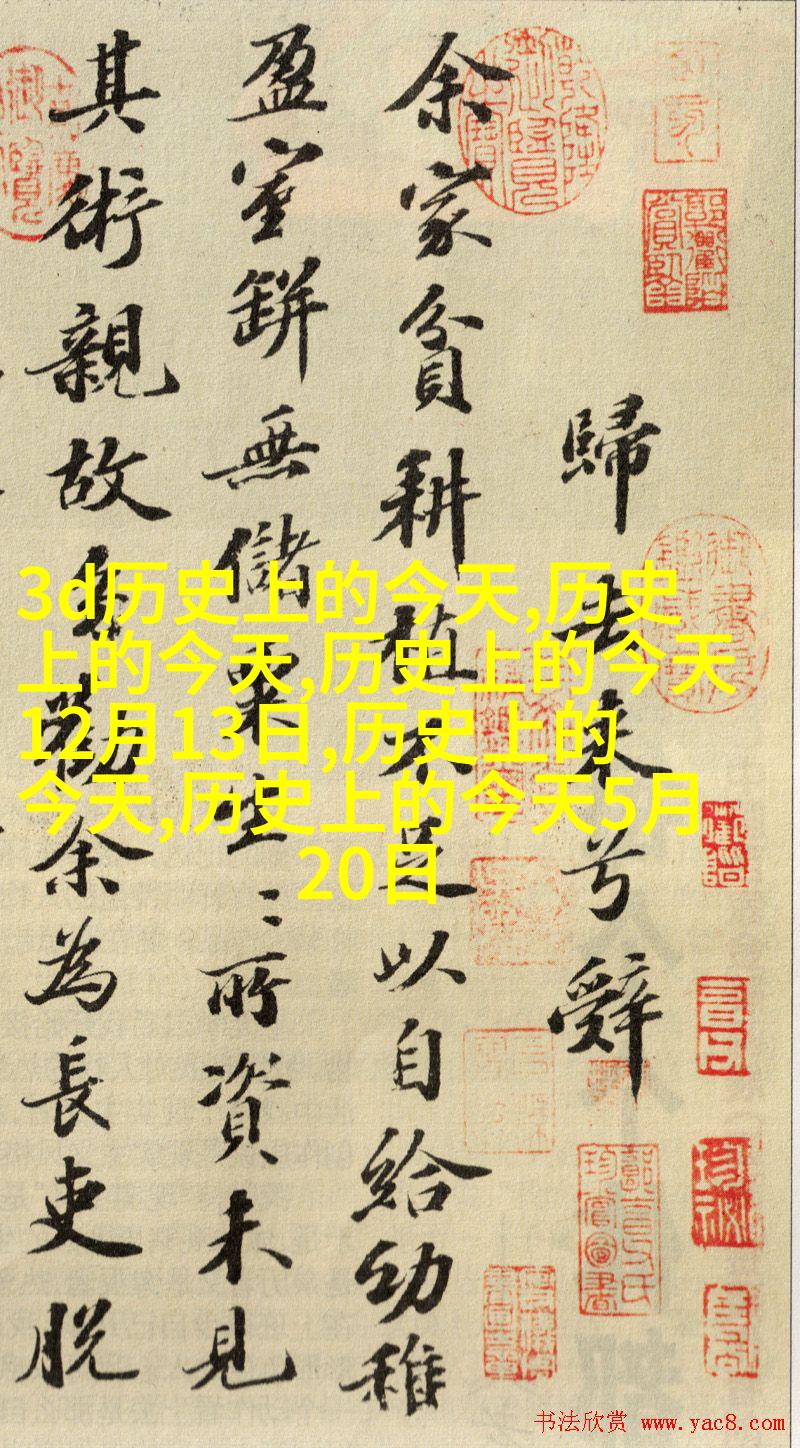 歸去来兮辭
余家貧耕植不足以自給幼稚
盈室缾無儲粟生〻所資未見
其術親故多勸余為長吏脱
3d历史上的今天,历史
上的今天,历史上的今天
12月13日,历史上的
今天,历史上的今天5月
20日
书法欣赏 www.yac8.com